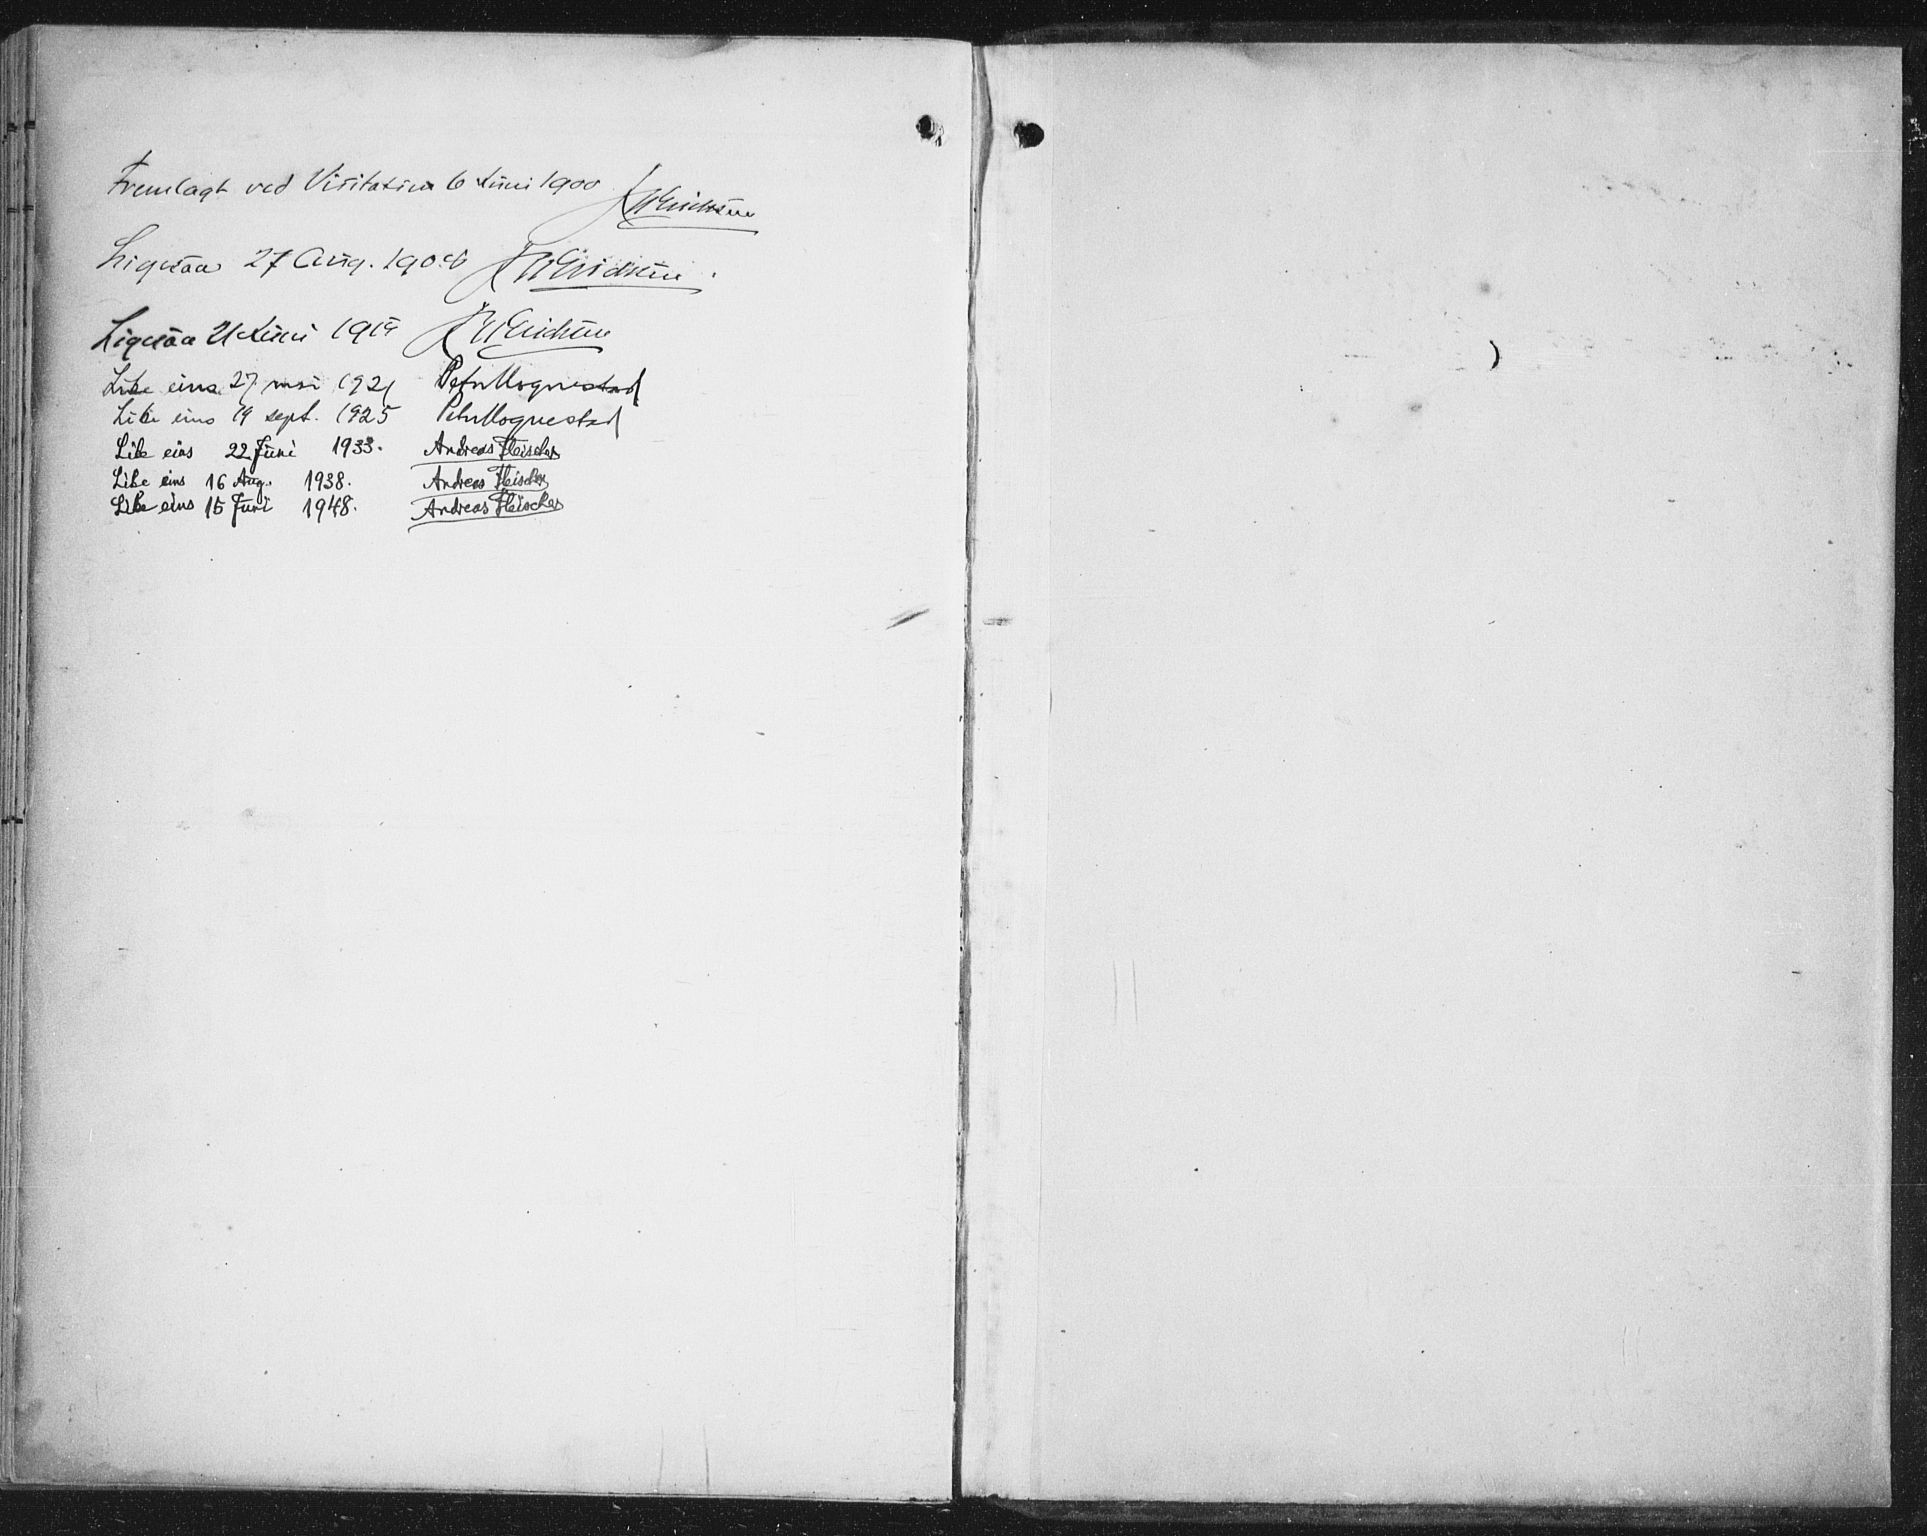 Fremlagt ved Visitation 6 Juni 1900 J W Erichsen
Ligesaa 27 Aug. 190 J W Erichsen
Ligesaa 21 Juni 191 J W Erichsen
Like eins 27 mai 1921 Peter Hognestad
Like eins 19 sept. 1925 Peter Hognestad
Like eins 22 Juni 1933. Andreas Fleischer
Like eins 16 Aug. 1938. Andreas Fleischer
Like eins 15 Juni 1948. Andreas Fleischer